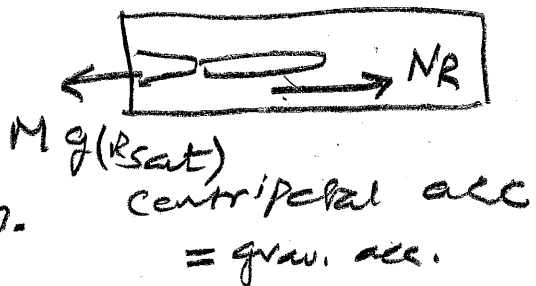 N_R
M g(R_sat)
centripetal acc
n.
= grav. acc.